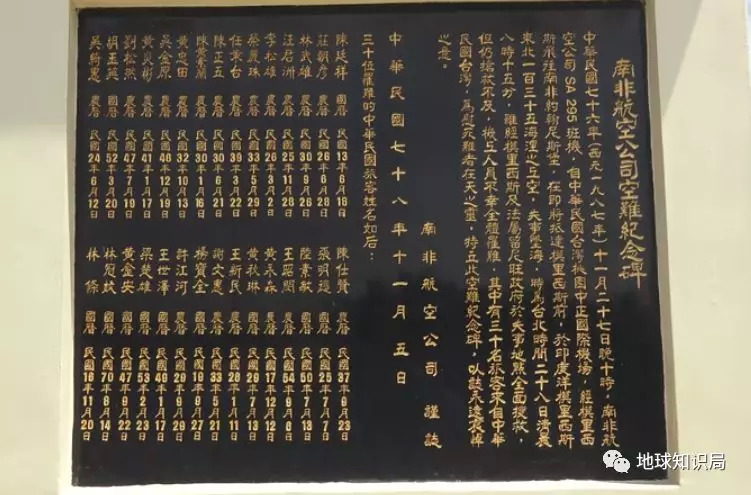 南非航空公司空難紀念碑
中華民國七十六年(西元一九八七年)十一月二十七日晚十時,南非航
空公司 SA 295 班機,自中華民國台灣桃園中正國際機場,經模里西
斯飛往南非約翰尼斯堡,在即將抵達模里西斯前,於印度洋模里西斯
東北一百三十五海浬之上空,失事墜海,時為台北時間二十八日清晨
八時十五分,雖經模里西斯及法屬留尼旺政府於失事地點全面搜救,
但仍搶救不及,機上人員不幸全體罹難,其中有三十名旅客來自中華
民國台灣,為慰死難者在天之靈,特立此空難紀念碑,以誌永遠哀悼
之意。
南非航空公司 謹誌
中華民國七十八年十一月五日
三十位罹難的中華民國旅客姓名如后:
陳廷祥 國曆 民國13年6月18日
莊朝彥 農曆 民國26年6月28日
林武雄 農曆 民國30年9月26日
汪石洲 農曆 民國25年11月28日
李松雄 農曆 民國26年3月2日
蔡麗珠 農曆 民國33年5月29日
任東台 農曆 民國39年3月22日
陳正五 農曆 民國31年2月21日
陳黃素蘭 農曆 民國30年6月16日
黃志田 農曆 民國32年10月13日
吳金原 農曆 民國46年12月19日
黃炎彬 農曆 民國41年11月17日
劉松然 農曆 民國47年7月19日
胡玉英 農曆 民國52年3月20日
吳綺惠 農曆 民國24年6月12日
陳仕賢 農曆 民國37年8月23日
張明德 國曆 民國25年7月7日
陸素敏 國曆 民國50年12月25日
王昭閔 國曆 民國54年9月6日
黃永森 農曆 民國17年12月12日
黃秋琳 農曆 民國29年7月13日
王新民 農曆 民國28年11月11日
謝文惠 農曆 民國33年5月21日
楊寶全 國曆 民國19年9月27日
許江河 國曆 民國29年6月29日
王世澤 農曆 民國49年11月17日
梁楚雄 國曆 民國53年2月1日
黃盧安 國曆 民國47年9月22日
林賀 國曆 民國70年8月14日
林一條 國曆 民國16年11月20日
地球知识局